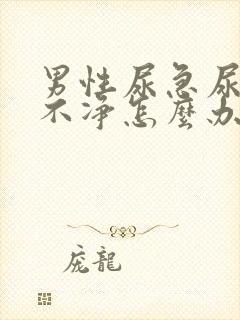 男性尿急尿
不净怎麼办
庞龍